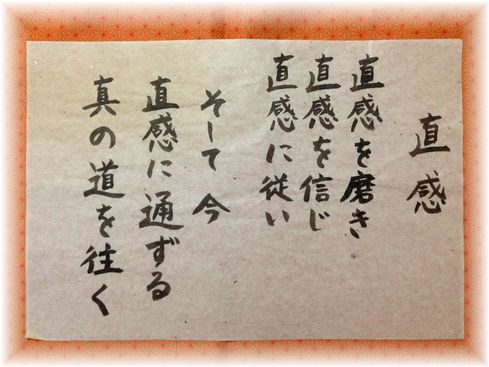 直感
直感を磨き
直感を信じ
直感に従い
そして今
直感に通ずる
真の道を往く